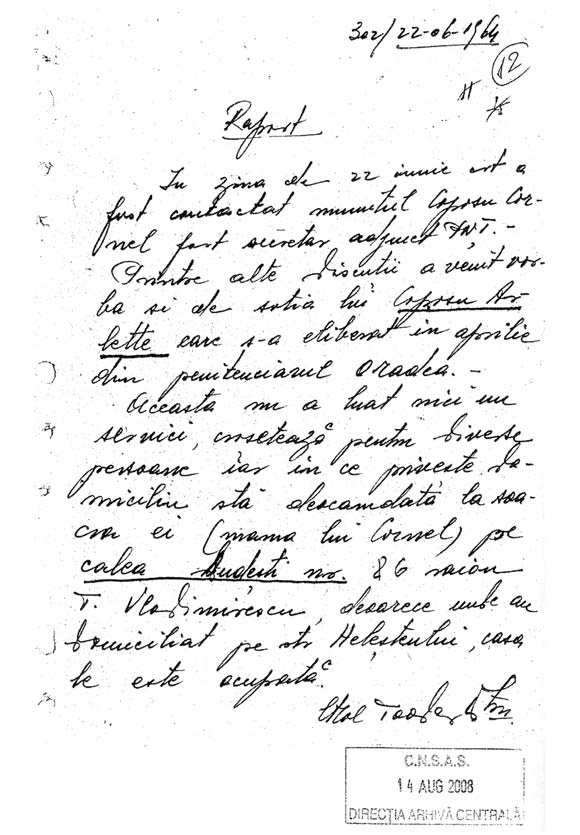 302/22-06-1964
12
Raport
In ziua de 22 iunie crt a
fost contactat numitul Coposu Cor-
nel fost secretar adjunct PNT. -
Printre alte discutii a venit vor-
ba si de sotia lui Coposu Ar-
lette care s-a eliberat in aprilie
din penitenciarul Oradea. -
Aceasta nu a luat nici un
servici, crosetează pentru diverse
persoane iar in ce priveste do-
miciliu stă deocamdată la soa-
cra ei (mama lui Cornel) pe
calea Dudesti nr. 86 raion
T. Vladimirescu, deoarece unde au
domiciliat pe str Helesteului, casa
le este ocupată.
C.N.S.A.S.
14 AUG 2008
DIRECȚIA ARHIVĂ CENTRALĂ